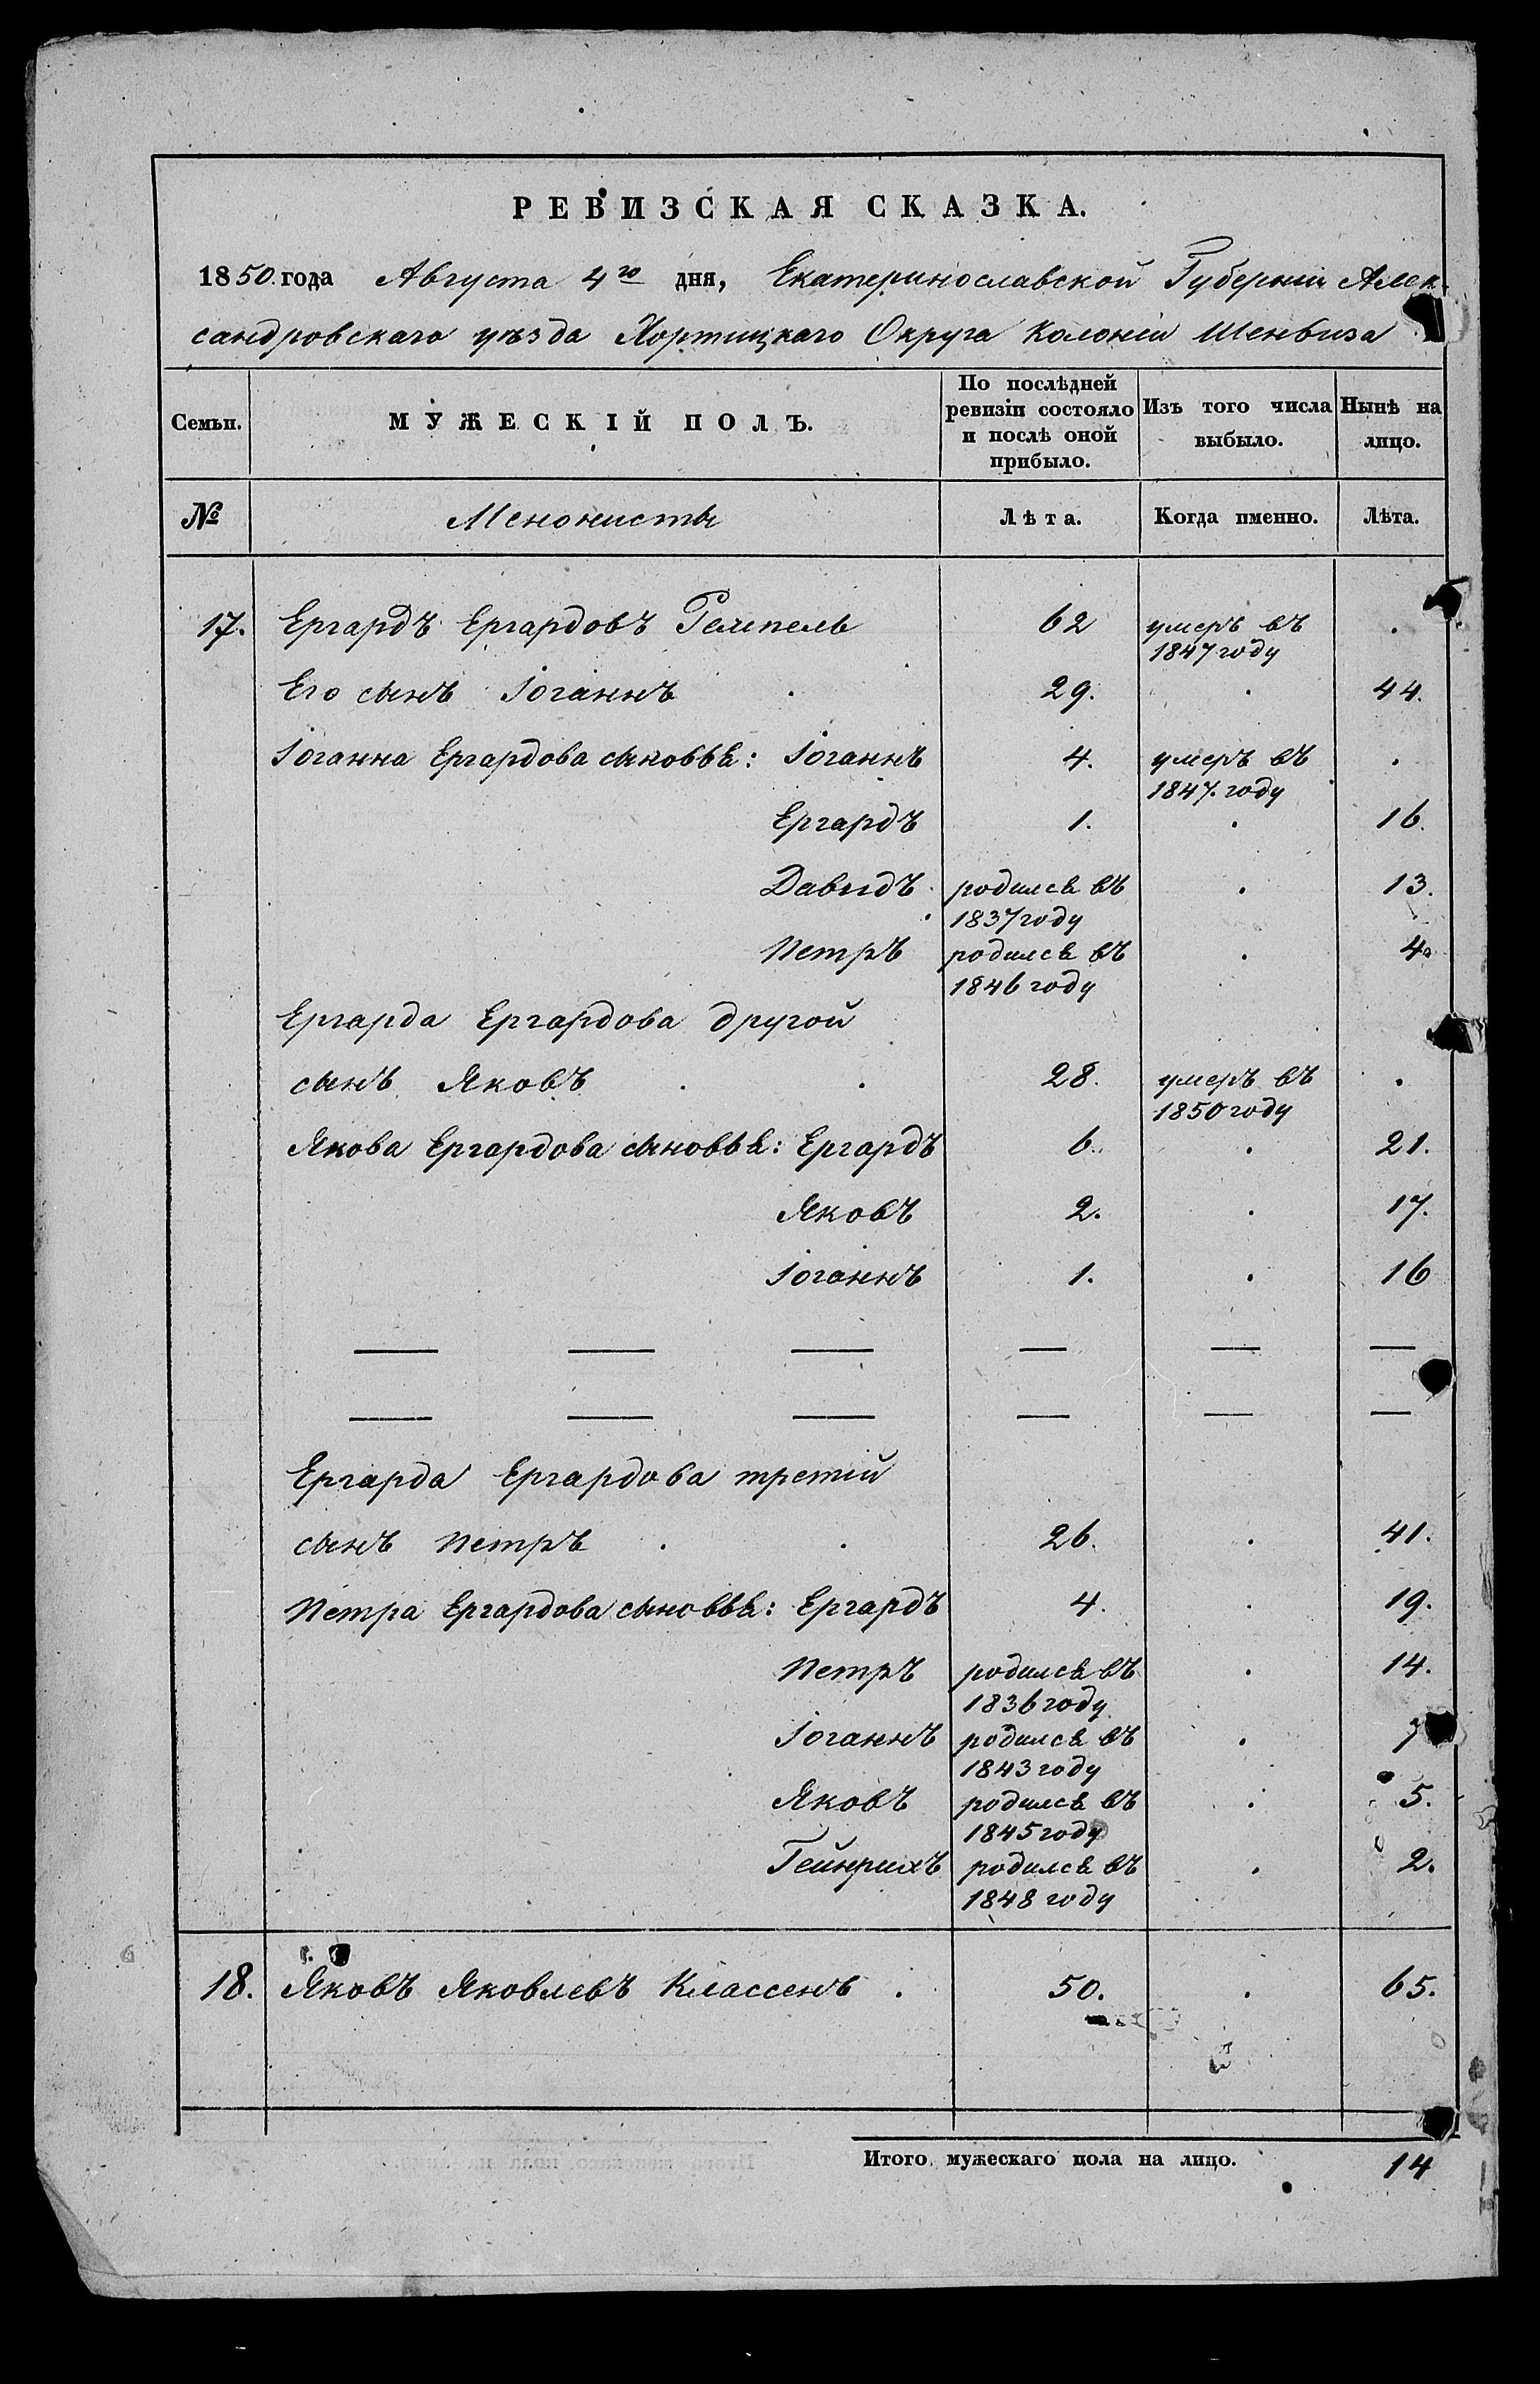 РЕВИЗСКАЯ СКАЗКА.
1850. года Августа 4го дня, Екатеринославской Губерніи Алек-
сандровскаго уѣзда Хортицкаго Округа Колоніи Шенвиза
Семьи. МУЖЕСКІЙ ПОЛЪ. По послѣдней ревизіи состояло и послѣ оной прибыло. Изъ того числа выбыло. Нынѣ на лицо.
№ Менонисты Лѣта. Когда именно. Лѣта.
17. Ергардъ Ергардовъ Гемпель 62 умеръ въ 1847 году .
Его сынъ Іоганнъ . 29. . 44.
Іоганна Ергардова сыновья: Іоганнъ 4. умеръ въ 1847. году .
Ергардъ 1. . 16.
Давыдъ родился въ 1837 году . 13.
Петръ родился въ 1846 году . 4.
Ергарда Ергардова другой
сынъ Яковъ . . 28. умеръ въ 1850 году .
Якова Ергардова сыновья: Ергардъ 6. . 21.
Яковъ 2. . 17.
Іоганнъ 1. . 16
— — — — — —
— — — — — —
Ергарда Ергардова третій
сынъ Петръ . . 26. . 41.
Петра Ергардова сыновья: Ергардъ 4. . 19.
Петръ родился въ 1836 году . 14.
Іоганнъ родился въ 1843 году . 7
Яковъ родился въ 1845 году . 5.
Гейнрихъ родился въ 1848 году . 2.
18. Яковъ Яковлевъ Классенъ . 50. . 65.
Итого мужескаго пола на лицо. 14